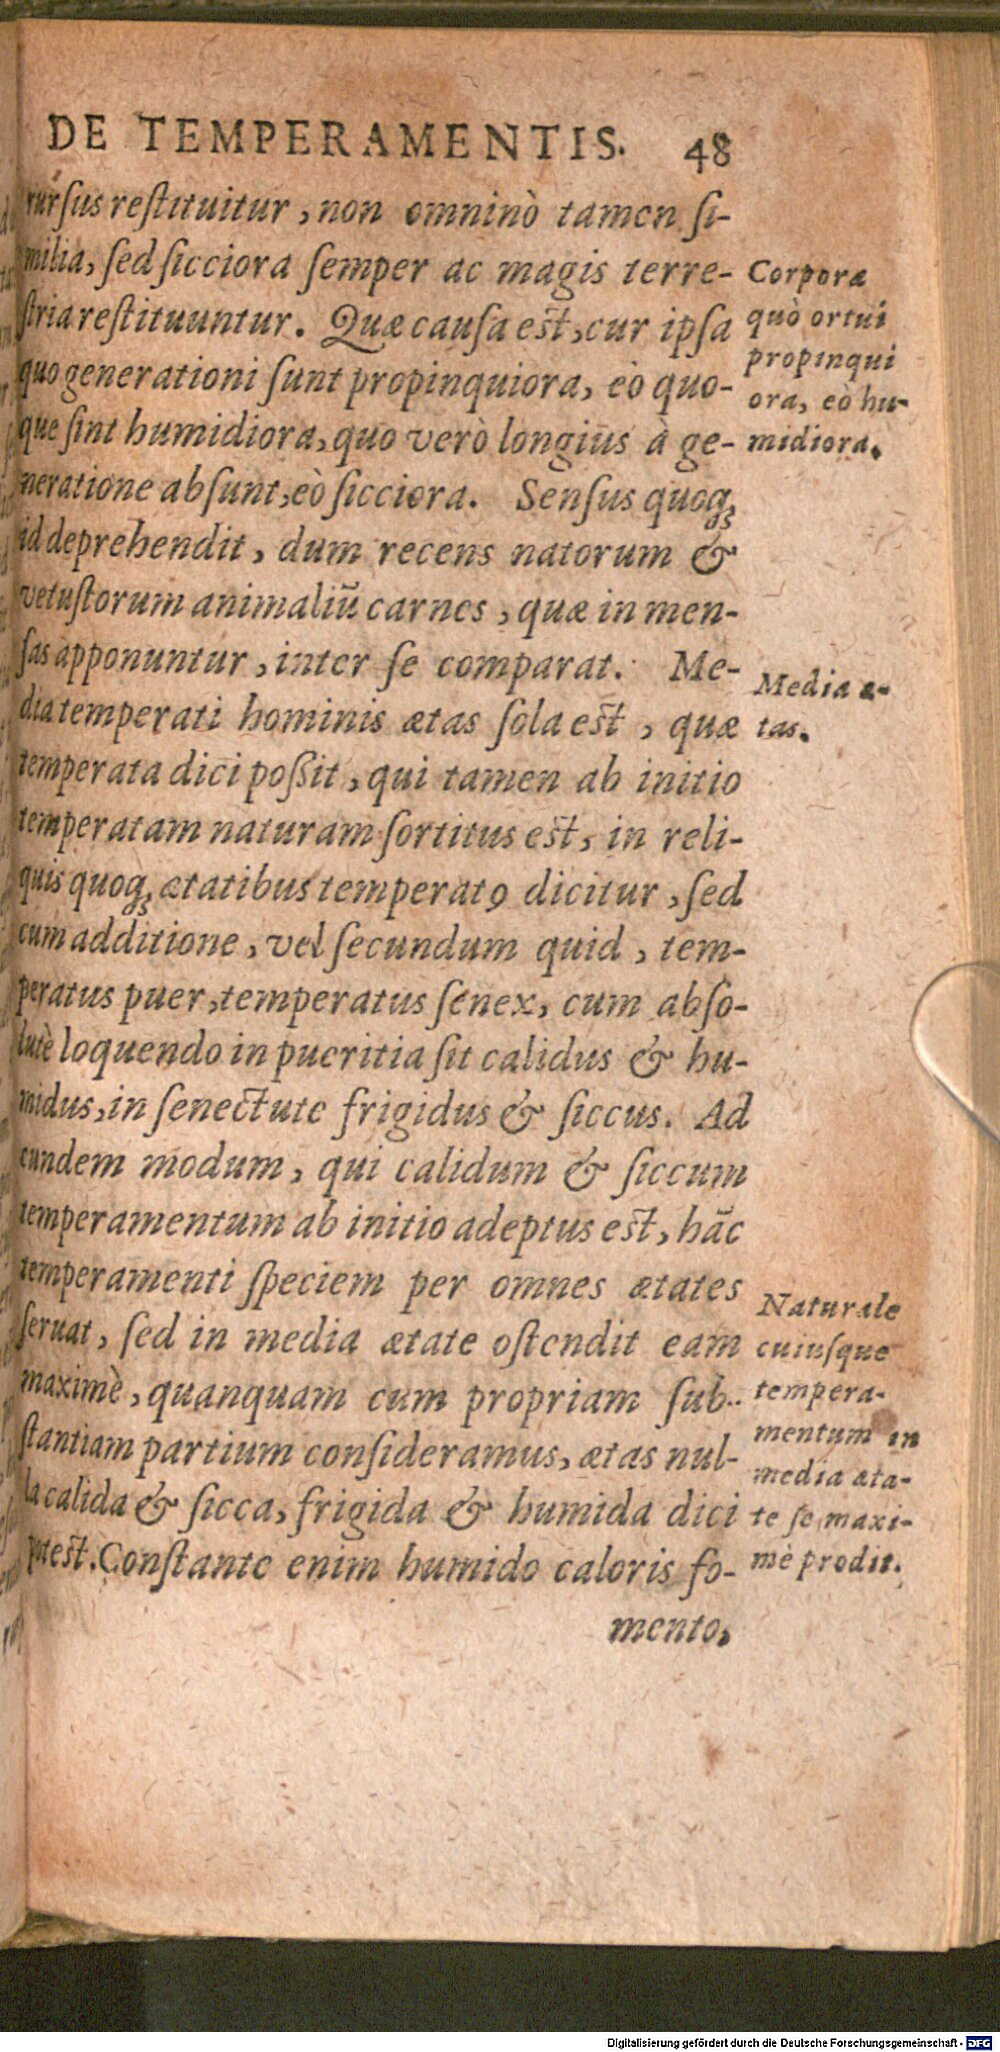 DE TEMPERAMENTIS. 48
rursus restituitur, non omninò tamen si-
milia, sed sicciora semper ac magis terre-
stria restituuntur. Quæ causa est, cur ipsa
quo generationi sunt propinquiora, eò quo-
que sint humidiora, quo verò longius à ge-
neratione absunt, eò sicciora. Sensus quoq;
id deprehendit, dum recens natorum &
vetustorum animaliũ carnes, quæ in men-
sas apponuntur, inter se comparat. Me-
dia temperati hominis ætas sola est, quæ
temperata dici poßit, qui tamen ab initio
temperatam naturam sortitus est, in reli-
quis quoq; ætatibus temperatꝰ dicitur, sed
cum additione, vel secundum quid, tem-
peratus puer, temperatus senex, cum abso-
lutè loquendo in pueritia sit calidus & hu-
midus, in senectute frigidus & siccus. Ad
eundem modum, qui calidum & siccum
temperamentum ab initio adeptus est, hãc
temperamenti speciem per omnes ætates
seruat, sed in media ætate ostendit eam
maximè, quanquam cum propriam sub-
stantiam partium consideramus, ætas nul-
la calida & sicca, frigida & humida dici
potest. Constante enim humido caloris fo-
mento,
Corpora
quò ortui
propinqui
ora, eò hu-
midiora.
Media æ-
tas.
Naturale
cuiusque
tempera-
mentum in
media æta-
te se maxi-
mè prodit.
Digitalisierung gefördert durch die Deutsche Forschungsgemeinschaft - DFG